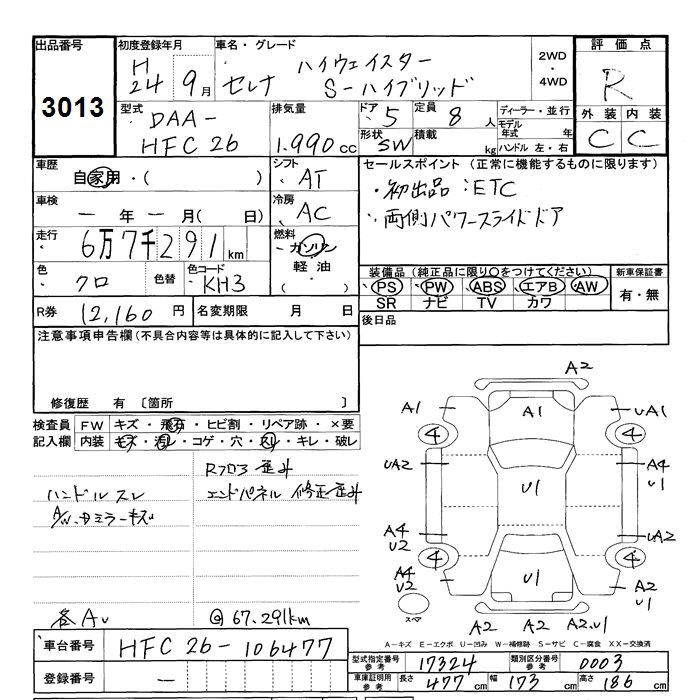 出品番号 初度登録年月 車名・グレード 2WD・4WD 評価点
3013 H24 9月 セレナ ハイウェイスター S-ハイブリッド R
型式 排気量 ドア 定員 ディーラー・並行 外装 内装
DAA-HFC26 1.990cc 5 8人 モデル年式 年 C C
形状 SW 積載 kg ハンドル 左・右
車歴 自家用・( ) シフト AT セールスポイント (正常に機能するものに限ります)
・初出品:ETC
車検 ー年ー月( 日) 冷房 AC ・両側パワースライドドア
走行 6万7千291km 燃料 ガソリン・軽油・( )
色 クロ 色替 色コード KH3 装備品 (純正品に限り○をつけてください) 新車保証書
PS PW ABS エアB AW 有・無
SR ナビ TV カワ
R券 12,160円 名変期限 月 日 後日品
注意事項申告欄(不具合内容等は具体的に記入して下さい)
修復歴 有 〔箇所 〕
検査員 FW キズ・飛石・ヒビ割・リペア跡・×要
記入欄 内装 キズ・汚レ・コゲ・穴・スレ・キレ・破レ
Rフロア 歪み
ハンドルスレ エンドパネル 修正歪み
A/W、ドミラーキズ
各AU @67.291km
A2
A1 A1 UA1
4 4
UA2 U1 A4 U1
A4 U2 UA2
4 4
A4 U2 U1 A2 U1
スペア
A2 A2 A2.U1
A-キズ E-エクボ U-凹み W-補修跡 S-サビ C-腐食 XX-交換済
車台番号 HFC26-106477
型式指定番号 参考 17324 類別区分番号 参考 0003
登録番号 ー 車庫証明用 参考 長さ 477cm 幅 173cm 高さ 186cm